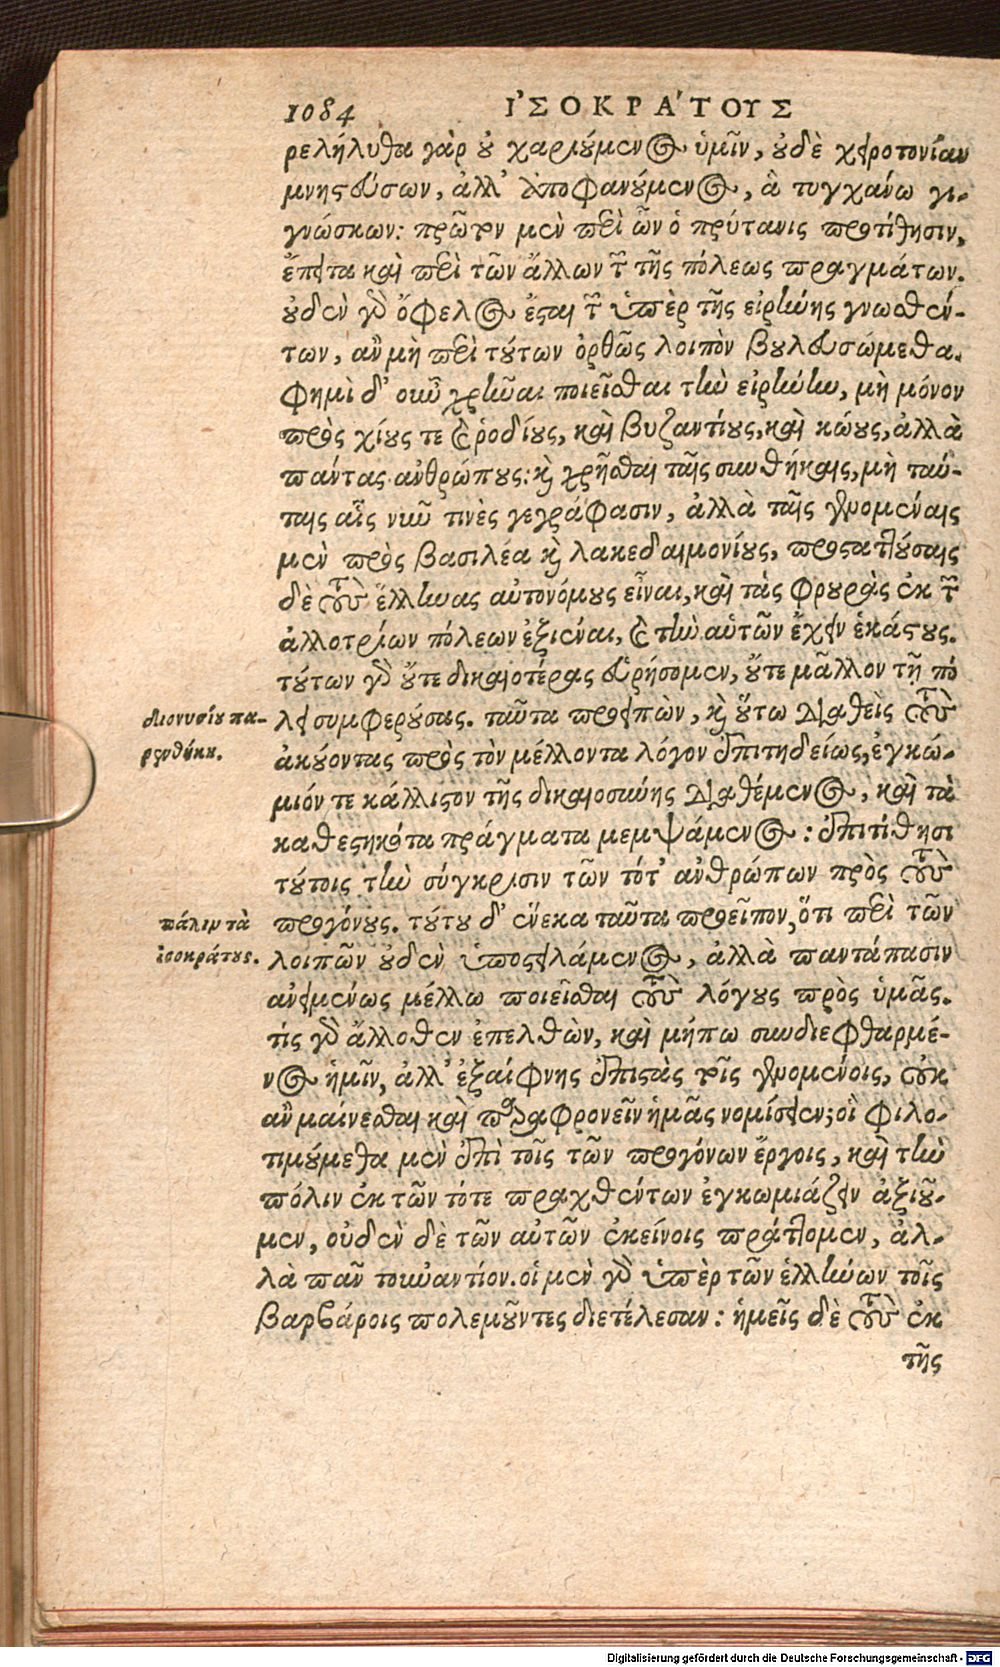 1084 ἸΣΟΚΡΆΤΟΥΣ
ρελήλυθα γὰρ οὐ χαριούμενος ὑμῖν, οὐδὲ χειροτονίαν
μνηστεύσων, ἀλλ' ἀποφανούμενος, ἃ τυγχάνω γι-
γνώσκων: πρῶτον μὲν περὶ ὧν ὁ πρύτανις προτίθησιν,
ἔπειτα καὶ περὶ τῶν ἄλλων τῶν τῆς πόλεως πραγμάτων.
οὐδὲν γὰρ ὄφελος ἔσται τῶν ὑπὲρ τῆς εἰρήνης γνωσθέν-
των, ἂν μὴ περὶ τούτων ὀρθῶς λοιπὸν βουλευσώμεθα.
φημὶ δ' οὖν χρῆναι ποιεῖσθαι τὴν εἰρήνην, μὴ μόνον
πρὸς χίους τε καὶ ῥοδίους, καὶ βυζαντίους, καὶ κώους, ἀλλὰ
πάντας ἀνθρώπους: καὶ χρῆσθαι ταῖς συνθήκαις, μὴ ταύ-
ταις αἷς νῦν τινὲς γεγράφασιν, ἀλλὰ ταῖς γενομέναις
μὲν πρὸς βασιλέα καὶ λακεδαιμονίους, προσταττούσαις
δὲ τοὺς ἕλληνας αὐτονόμους εἶναι, καὶ τὰς φρουρὰς ἐκ τῶν
ἀλλοτρίων πόλεων ἐξιέναι, καὶ τὴν αὑτῶν ἔχειν ἑκάστους.
τούτων γὰρ οὔτε δικαιοτέρας εὑρήσομεν, οὔτε μᾶλλον τῇ πό
λει συμφερούσας. ταῦτα προειπὼν, καὶ οὕτω διαθεὶς τοὺς
διονυσίου πα-
ρενθήκη.
ἀκούοντας πρὸς τὸν μέλλοντα λόγον ἐπιτηδείως, ἐγκώ-
μιόν τε κάλλιστον τῆς δικαιοσύνης διαθέμενος, καὶ τὰ
καθεστηκότα πράγματα μεμψάμενος: ἐπιτίθησι
τούτοις τὴν σύγκρισιν τῶν τότ' ἀνθρώπων πρὸς τοὺς
προγόνους. τούτου δ' ἕνεκα ταῦτα προεῖπον, ὅτι περὶ τῶν
πάλιν τὰ
ἰσοκράτους.
λοιπῶν οὐδὲν ὑποστειλάμενος, ἀλλὰ παντάπασιν
ἀνειμένως μέλλω ποιεῖσθαι τοὺς λόγους πρὸς ὑμᾶς.
τίς γὰρ ἄλλοθεν ἐπελθὼν, καὶ μήπω συνδιεφθαρμέ-
νος ἡμῖν, ἀλλ' ἐξαίφνης ἐπιστὰς τοῖς γενομένοις, οὐκ
ἂν μαίνεσθαι καὶ παραφρονεῖν ἡμᾶς νομίσειεν; οἳ φιλο-
τιμούμεθα μὲν ἐπὶ τοῖς τῶν προγόνων ἔργοις, καὶ τὴν
πόλιν ἐκ τῶν τότε πραχθέντων ἐγκωμιάζειν ἀξιοῦ-
μεν, οὐδὲν δὲ τῶν αὐτῶν ἐκείνοις πράττομεν, ἀλ-
λὰ πᾶν τοὐναντίον. οἱ μὲν γὰρ ὑπὲρ τῶν ἑλλήνων τοῖς
βαρβάροις πολεμοῦντες διετέλεσαν: ἡμεῖς δὲ τοὺς ἐκ
τῆς
Digitalisierung gefördert durch die Deutsche Forschungsgemeinschaft - DFG